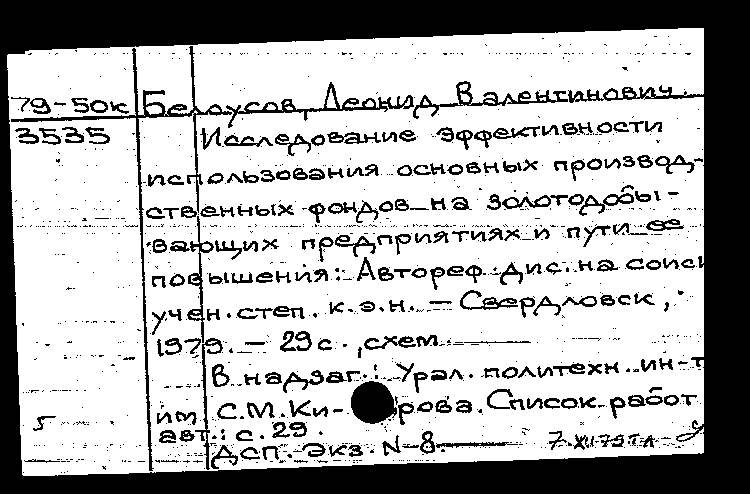 79-50к Белоусов, Леонид Валентинович.
3535 Исследование эффективности
использования основных производ-
ственных фондов на золотодобы-
вающих предприятиях и пути ее
повышения: Автореф. дис. на соиск
учен. степ. к.э.н. — Свердловск,
1979. — 29 с., схем.
В надзаг.: Урал. политехн. ин-т
им. С.М. Ки-рова. Список работ
5 авт.: с. 29.
ДСП. Экз. N-8.